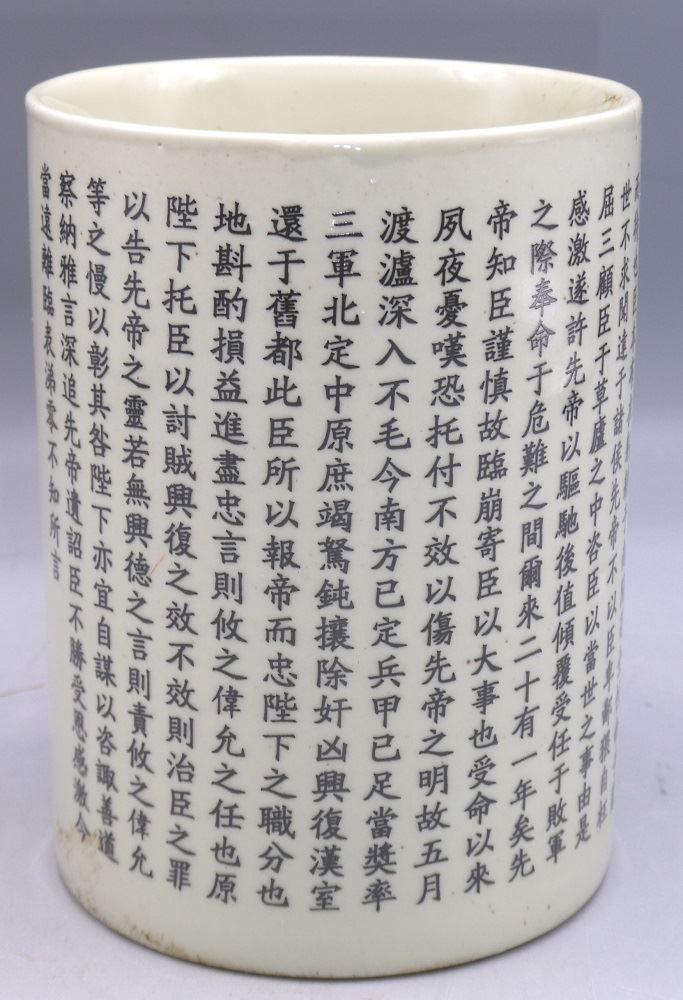 世不求聞達于諸侯先帝不以臣卑鄙猥自枉
屈三顧臣于草廬之中咨臣以當世之事由是
感激遂許先帝以驅馳後值傾覆受任于敗軍
之際奉命于危難之間爾來二十有一年矣先
帝知臣謹慎故臨崩寄臣以大事也受命以來
夙夜憂嘆恐托付不效以傷先帝之明故五月
渡瀘深入不毛今南方已定兵甲已足當獎率
三軍北定中原庶竭駑鈍攘除奸凶興復漢室
還于舊都此臣所以報帝而忠陛下之職分也
地斟酌損益進盡忠言則攸之偉允之任也原
陛下托臣以討賊興復之效不效則治臣之罪
以告先帝之靈若無興德之言則責攸之偉允
等之慢以彰其咎陛下亦宜自謀以咨諏善道
察納雅言深追先帝遺詔臣不勝受恩感激今
當遠離臨表涕零不知所言